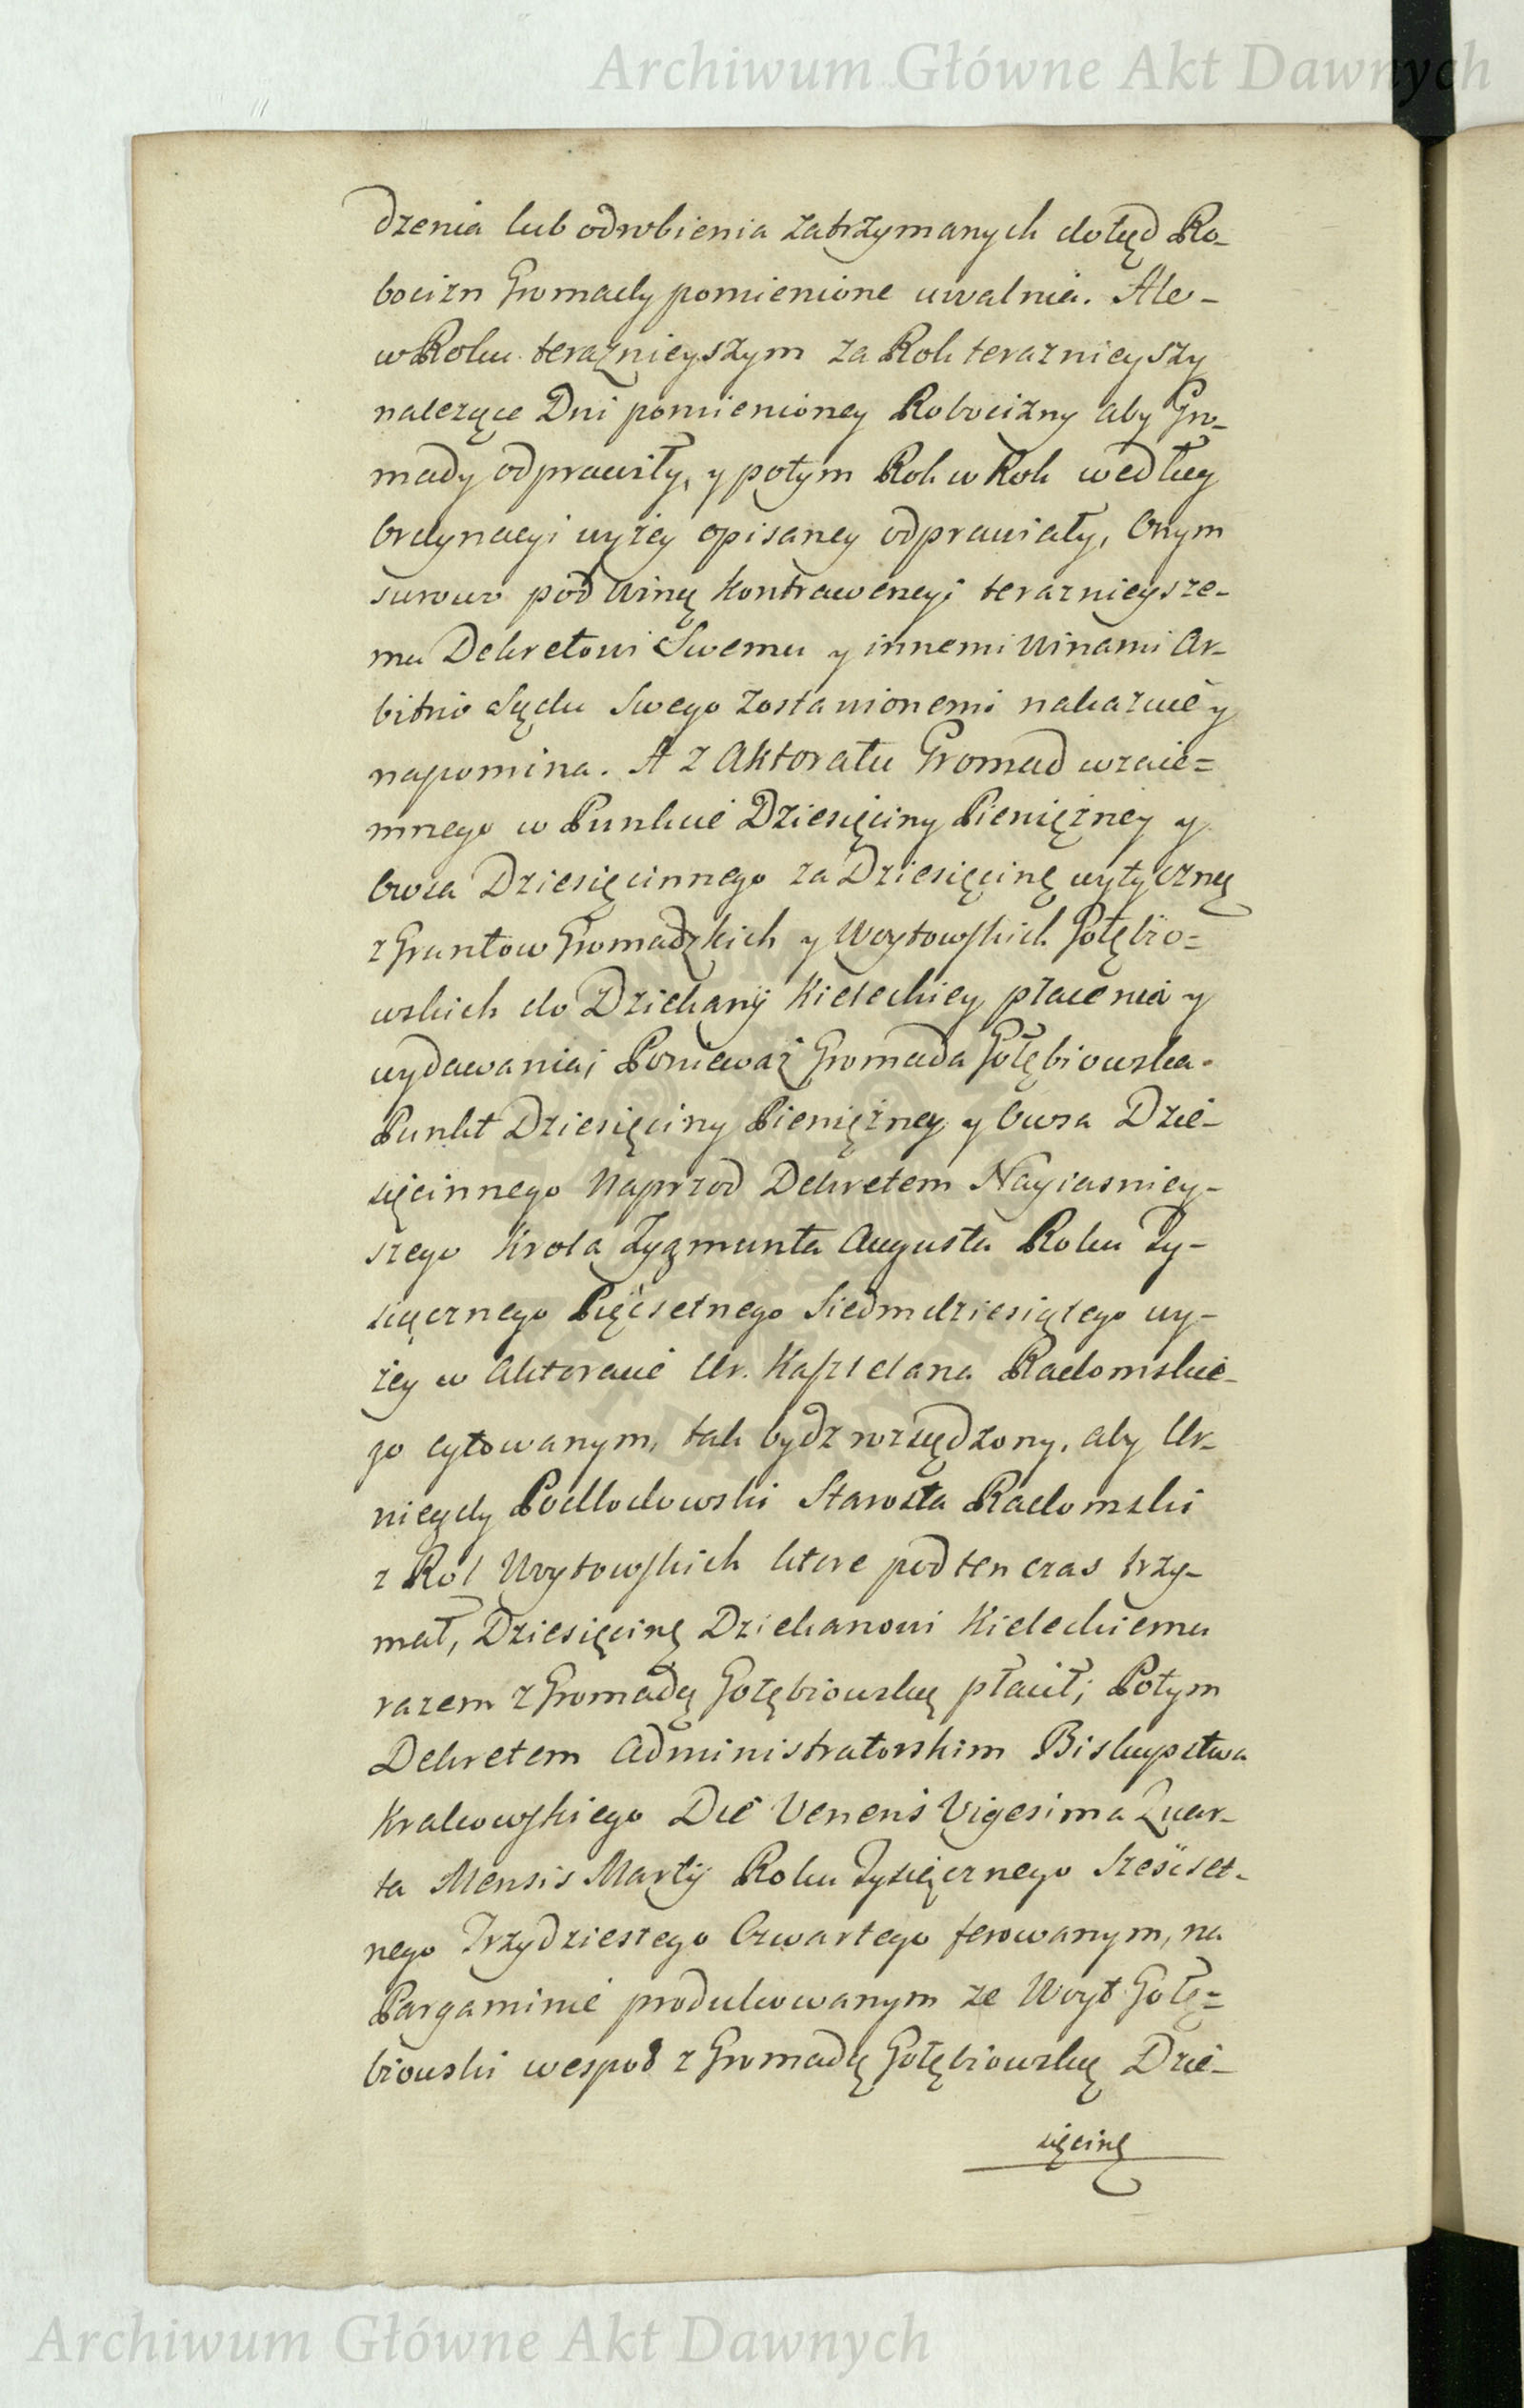 Archiwum Główne Akt Dawnych
dzenia lub odrobienia zatrzymanych dotąd Ro-
bocizn Gromady pomienione uwalnia. Ale-
w Roku teraznieyszym za Rok teraznieyszy
nalezące Dni pomienioney Robocizny aby Gro-
mady odprawiły, y potym Rok w Rok według
Ordynacyi wyżey opisaney odprawiały, Onym
surowo pod winą kontrawencyi teraznieysze-
mu Dekretowi Swemu y innemi Winami Ar-
bitrio Sądu Swego zostawionemi nakazuie y
napomina. A z Aktoratu Gromad wzaie=
mnego w Punkcie Dziesięciny Pieniężney y
Owsa Dziesięcinnego za Dziesięcinę wytyczną
z Gruntow Gromadzkich y Woytowskich Gołębio=
wskich do Dziekanÿ Kieleckiey płacenia y
wydawania; Ponieważ Gromada Gołębiowska
Punkt Dziesięciny Pieniężney y Owsa Dzie-
sięcinnego Naprzod Dekretem Nayiasniey-
szego Krola Zygmunta Augusta Roku Ty-
siącznego Pięćsetnego Siedmdziesiątego wy-
żey w Aktoracie Ur. Kasztelana Radomskie-
go cytowanym, tak bydz rozsądzony, aby Ur-
niegdy Podlodowski Starosta Radomski
z Rol Woytowskich ktore pod ten czas trzy-
mał, Dziesięcinę Dziekanowi Kieleckiemu
razem z Gromadą Gołębiowską płacił; Potym
Dekretem Administratorskim Biskupstwa
Krakowskiego Die Veneris Vigesima Quar-
ta Mensis Martÿ Roku Tysiącznego Sześćset-
nego Trzydziestego Czwartego ferowanym, na
Pargaminie produkowanym ze Woyt Gołę=
biowski wespoł z Gromadą Gołębiowską Dzie-
sięcinę
Archiwum Główne Akt Dawnych